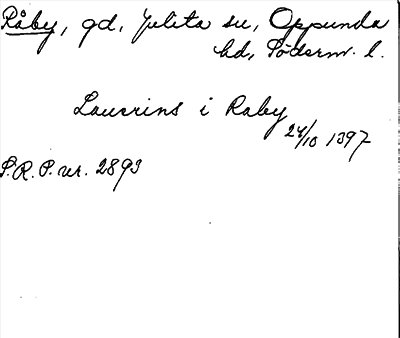 Råby, gd, Julita sn, Oppunda
hd, Söderm. l.
Laurens i Raby
24/10 1397
S.R.P. nr. 2893